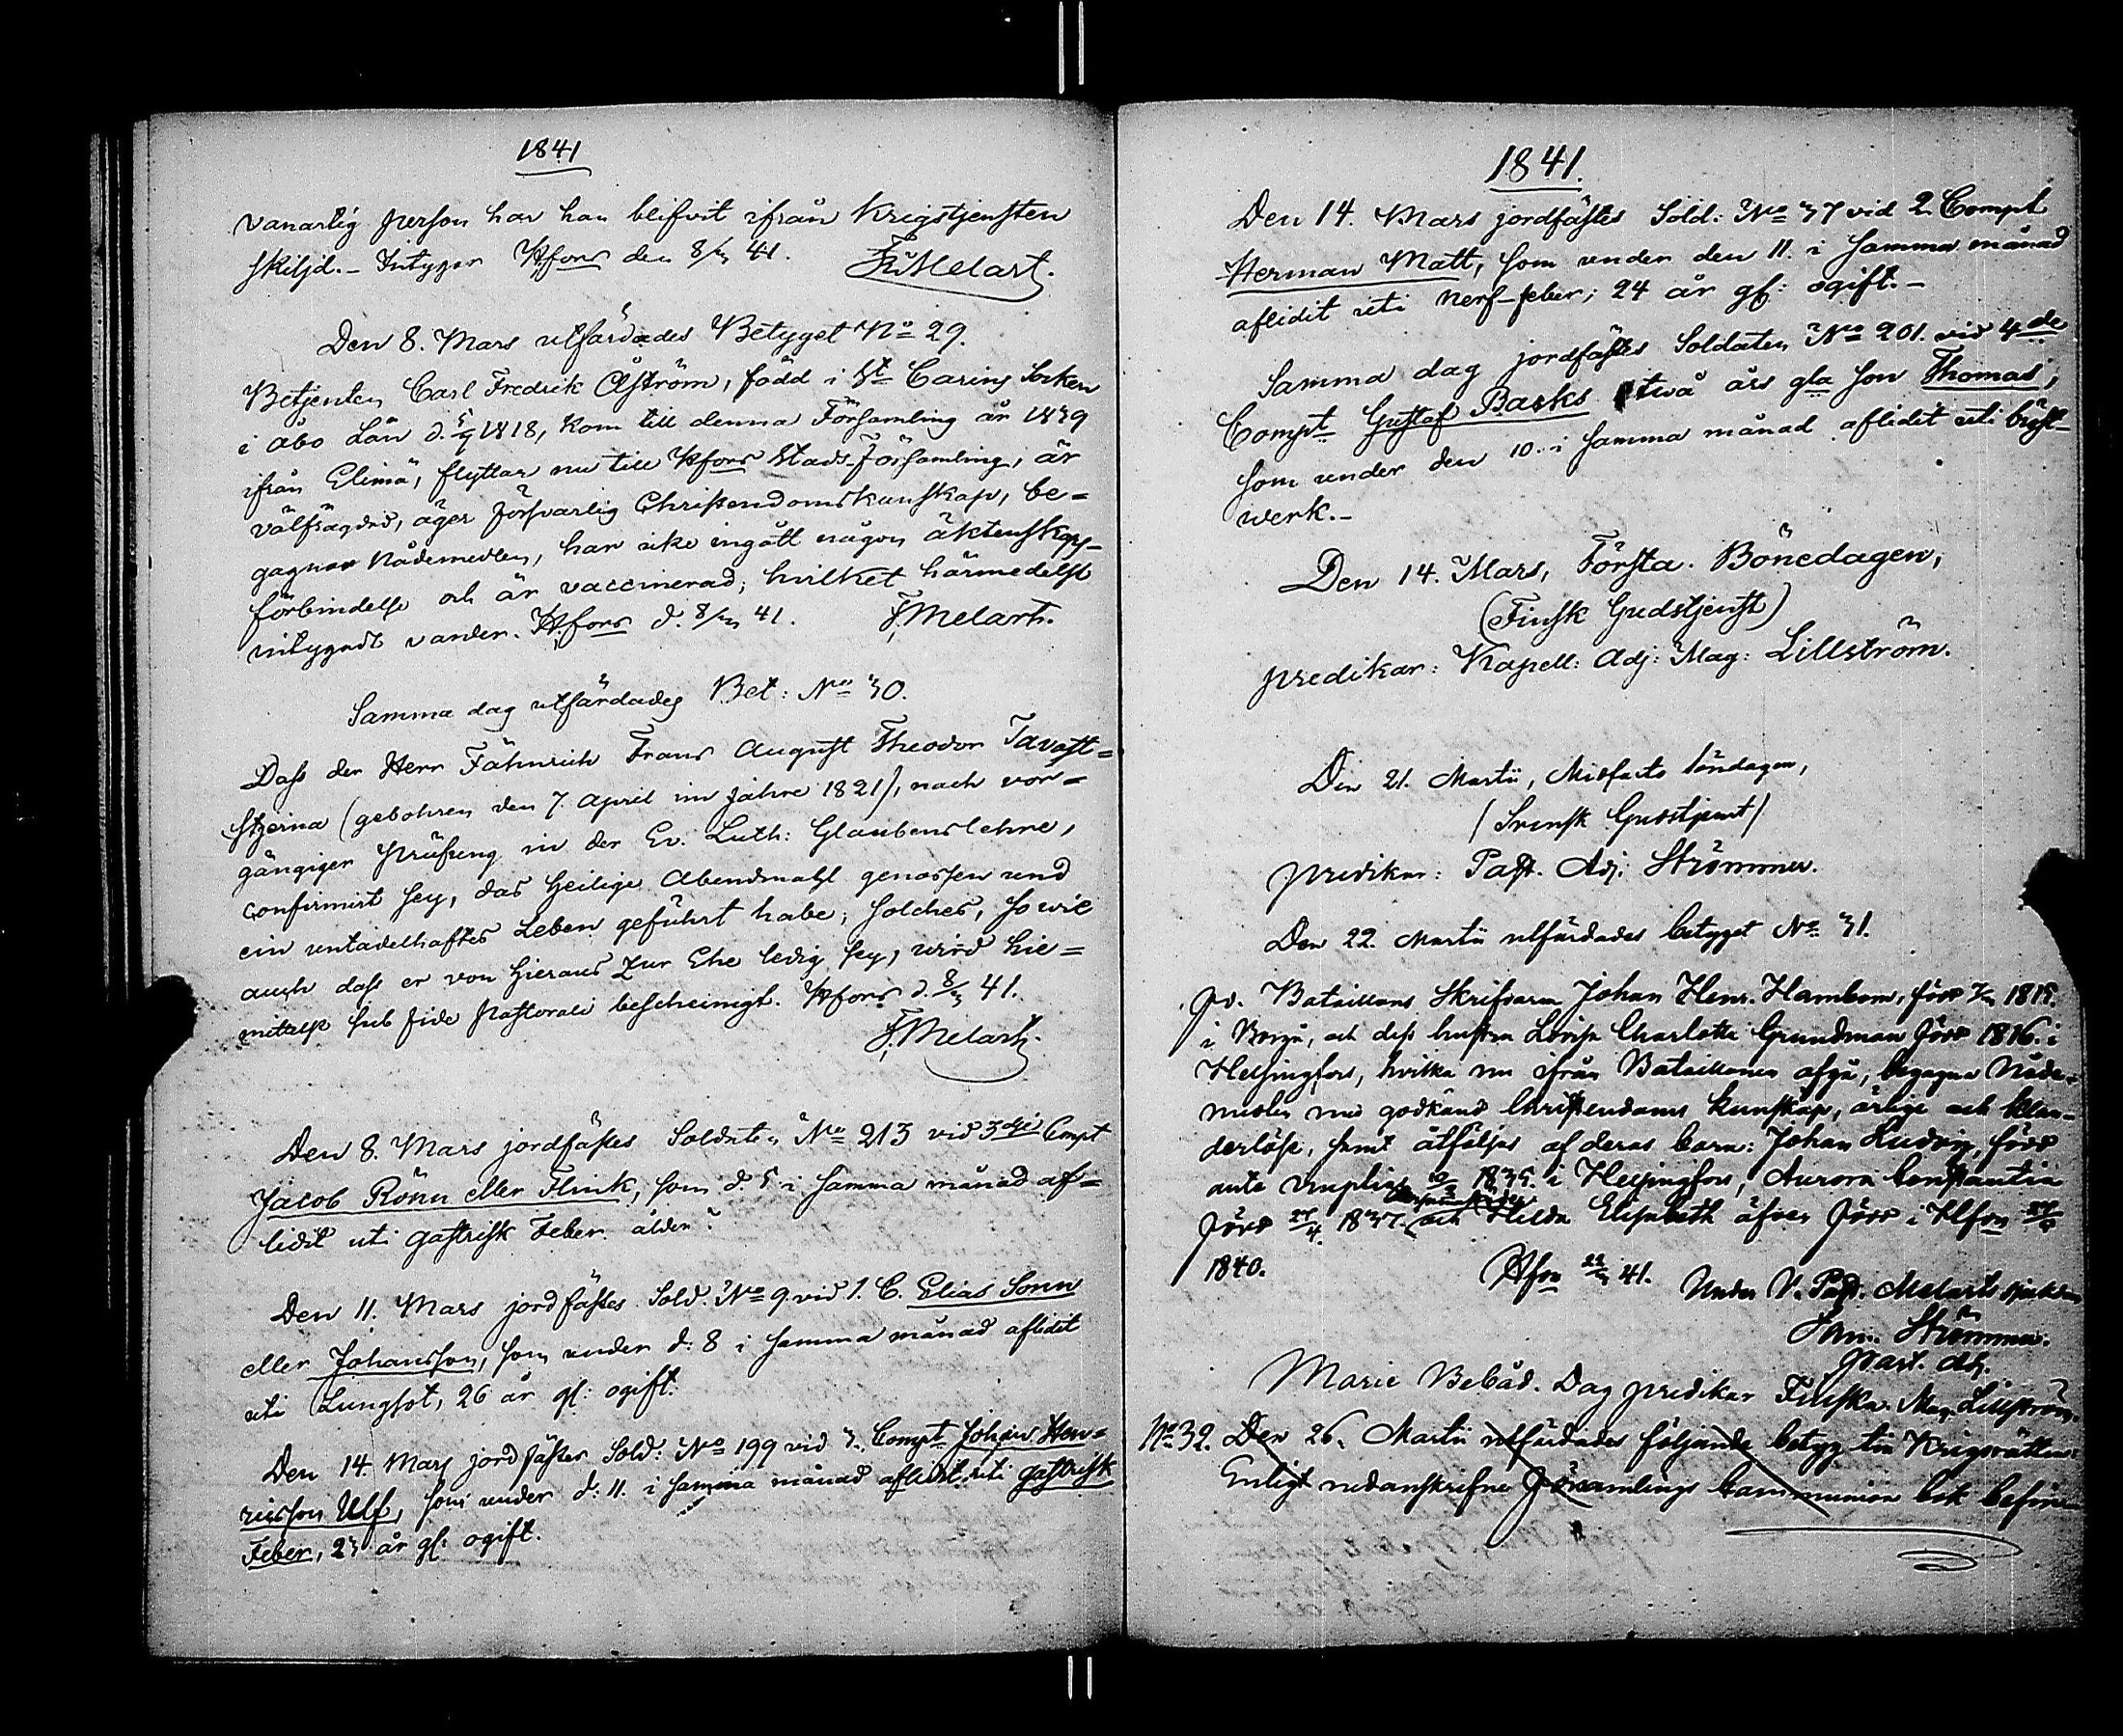 1841
vanartig person har han blifvit ifrån Krigstjensten
skiljd. – Intygar Hfors den 8/3 41. Fr. Melart.
Den 8. Mars utfärdades Betyget No 29.
Betjenten Carl Fredrik Åström, född i St Carins Socken
i Åbo Län d. 5/9 1818, kom till denna Församling år 1839
ifrån Elimä, flyttar nu till Hfors Stads-Församling, är
välfrägdad, äger försvarlig Christendomskunskap, be=
gagnar Nådemedlen, har icke ingått någon äktenskaps-
förbindelse och är vaccinerad; hvilket härmedelst
intygadt varder. Hfors d. 8/3 41. F. Melart.
Samma dag utfärdades Bet: No 30.
Dass der Herr Fähnrich Frans August Theodor Tavast=
stjerna (gebohren den 7. April im Jahre 1821), nach vor=
gängiger Prüfung in der Ev. Luth: Glaubenslehre,
confirmirt sey, das Heilige Abendmahl genossen und
ein untadelhaftes Leben geführt habe; solches, so wie
auch dass er von hieraus zur Ehe ledig sey, wird hie=
mitelst sub fide pastorali bescheinigt. Hfors d. 8/3 41.
F. Melart.
Den 8. Mars jordfästes Soldaten No 213 vid 3dje Compt
Jacob Rönn eller Flink, som d. 5 i samma månad af=
lidit uti gastrisk Feber. ålder?
Den 11. Mars jordfästes Sold. No 9 vid 1. C. Elias Sonn
eller Johansson, som under d: 8 i samma månad aflidit
uti Lungsot, 26 år gl: ogift.
Den 14. Mars jordfästes Sold: No 199 vid 3. Compt Johan Hen=
ricsson Ulf, som under d: 11. i samma månad aflidit uti gastrisk
Feber, 23 år gl: ogift.
1841.
Den 14. Mars jordfästes Sold: No 37 vid 2. Compt
Herman Matt, som under den 11. i samma månad
aflidit uti nerf-feber; 24 år gl: ogift. –
Samma dag jordfästes Soldaten No 201. vid 4de
Compt Gustaf Basks två års gla son Thomas,
som under den 10. i samma månad aflidit uti bröst-
werk. –
Den 14. Mars, Första. Bönedagen,
(Finsk Gudstjenst)
predikar: Kapell: Adj: Mag: Lillström.
Den 21. Martii, Midfasto Söndagen,
(Svensk Gudstjenst)
predikar: Past. Adj: Strömmer.
Den 22. Martii utfärdades betyget No 31.
Bataillons Skrifvaren Johan Henr. Hambom, född 1815.
i Borgå, och dess hustru Lovisa Charlotta Grundman född 1816. i
Helsingfors, hvilka nu ifrån Bataillonen afgå, begagna Nåde-
medlen med godkänd Christendoms kunskap, ärliga och klan-
derlöse, samt åtföljas af deras barn: Johan Ludvig, född
ante 1835. i Helsingfors, Aurora Constantia
född 1837. och Hilda Elisabeth äfven född i Hfors
1840. Hfors 22/3 41. Under V. Past. Melarts sjukdom
Strömmer.
past. adj.
Marie Bebåd. Dag predikar Finska Mag. Lillström.
No 32. Den 26. Martii utfärdades följande betyg till Krigsrätten:
Enligt nedanskrifne Församlings Communion bok befin